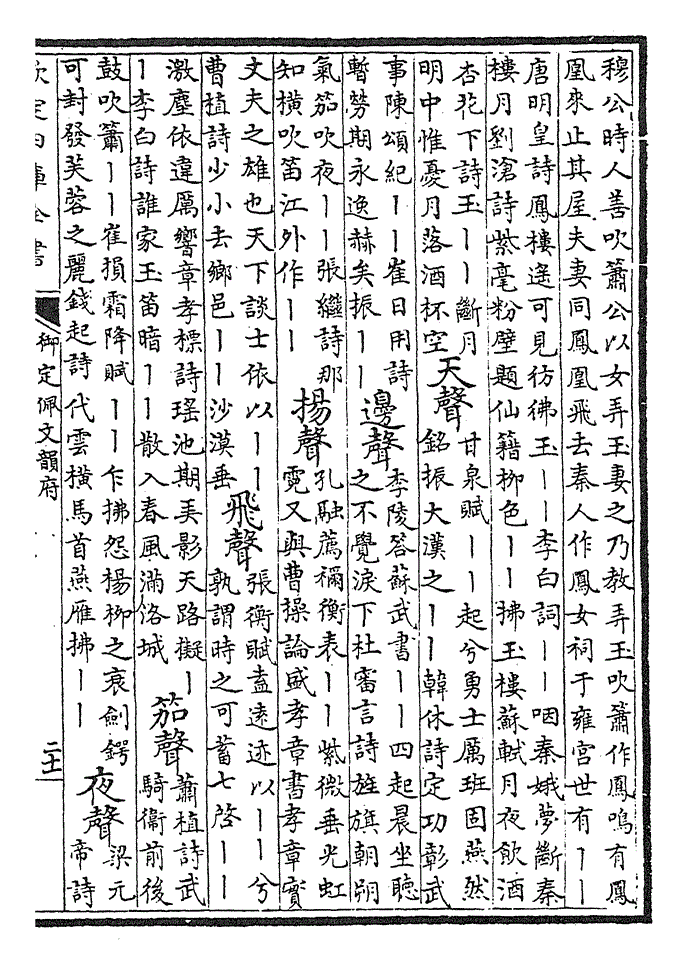 穆公時人善吹簫公以女弄玉妻之乃教弄玉吹簫作鳳鳴有鳳
凰來止其屋夫妻同鳳凰飛去秦人作鳳女祠于雍宮世有〡〡
唐明皇詩鳳樓遥可見彷彿玉〡〡李白詞〡〡咽秦娥夢斷秦
樓月劉滄詩紫毫粉壁題仙籍柳色〡〡拂玉樓蘇軾月夜飲酒
杏花下詩玉〡〡斷月
明中惟憂月落酒杯空
天聲
甘泉賦〡〡起兮勇士厲班固燕然
銘振大漢之〡〡韓休詩定功彰武
事陳頌紀〡〡崔日用詩
暫勞期永逸赫矣振〡〡
邊聲
李陵答蘇武書〡〡四起晨坐聽
之不覺淚下杜審言詩旌旗朝朔
氣笳吹夜〡〡張繼詩那
知橫吹笛江外作〡〡
揚聲
孔融薦禰衡表〡〡紫微垂光虹
霓又與曹操論盛孝章書孝章實
丈夫之雄也天下談士依以〡〡
曹植詩少小去鄉邑〡〡沙漠垂
飛聲
張衡賦盍遠迹以〡〡兮
孰謂時之可蓄七啓〡〡
激塵依違厲響章孝標詩瑤池期美影天路擬〡
〡李白詩誰家玉笛暗〡〡散入春風滿洛城
笳聲
蕭植詩武
騎衞前後
鼓吹簫〡〡崔損霜降賦〡〡乍拂怨楊柳之衰劍鍔
可封發芙蓉之麗錢起詩代雲橫馬首燕雁拂〡〡
夜聲
梁元
帝詩
欽定四庫全書
御定佩文韻府
二十一